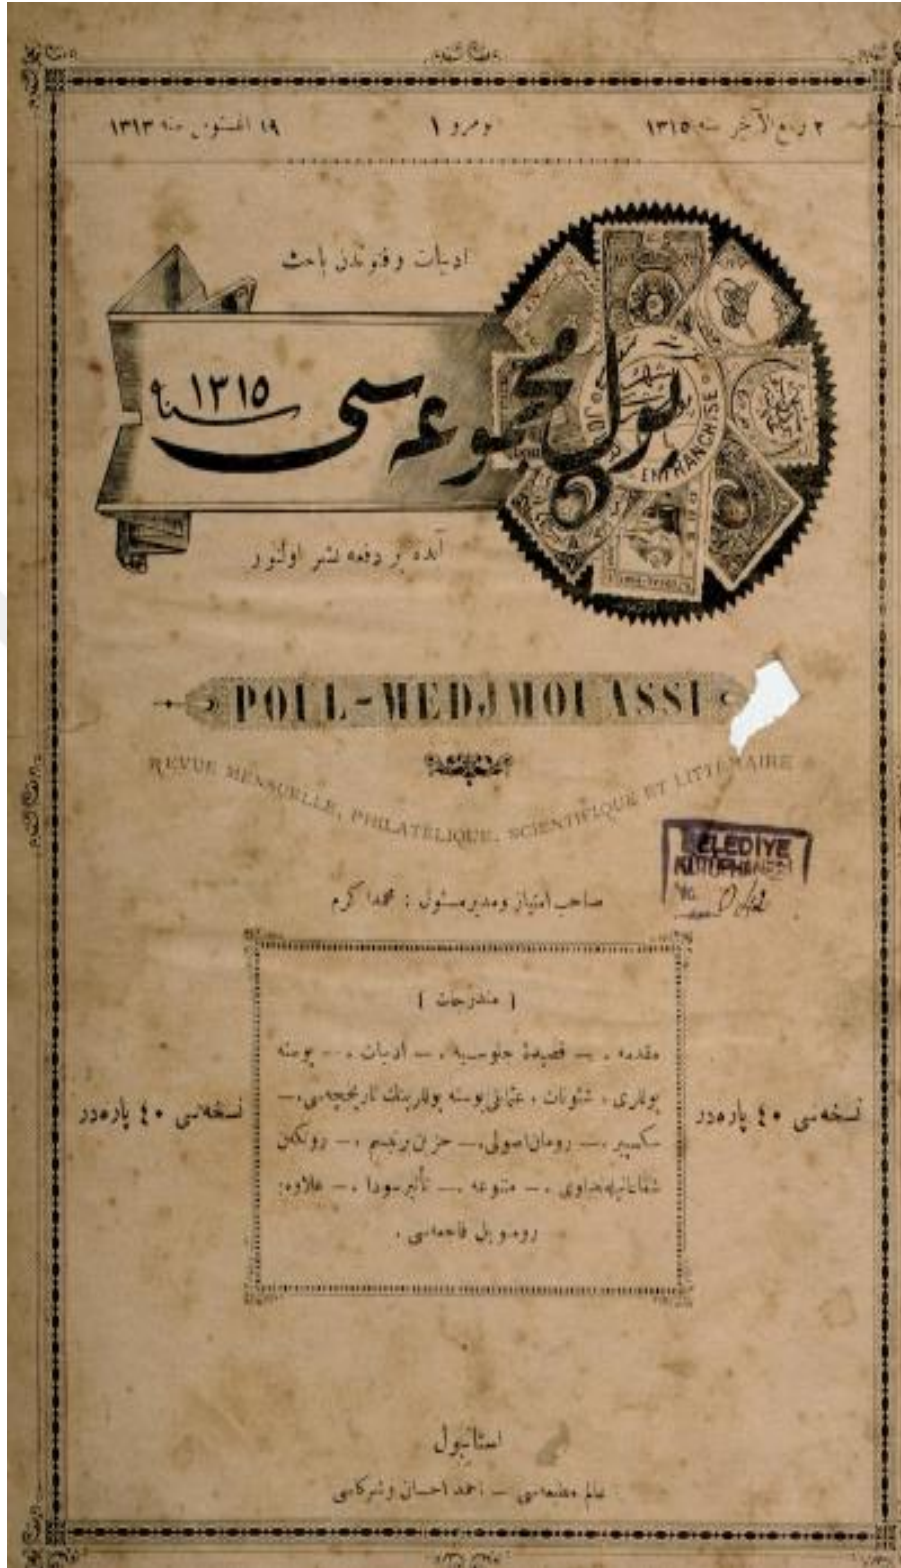 ٢ ربيع الآخر سنه ١٣١٥
نومرو ١
١٩ اغستوس سنه ١٣١٣
ادبيات و فنوندن باحث
پول مجموعه سى
سنه ١٣١٥
EN FRANCHISE
آيده بر دفعه نشر اولنور
POUL-MEDJMOUASSI
REVUE MENSUELLE, PHILATÉLIQUE, SCIENTIFIQUE ET LITTÉRAIRE
BELEDİYE
KÜTÜPHANESİ
No. 0/42
صاحب امتياز و مدير مسئول : محمد اكرم
[ مندرجات ]
مقدمه . — قصيدهٔ جلوسيه . — ادبيات . — پوسته
پوللرى ، شئونات ، عثمانلى پوسته پوللرينك تاريخچه‌سى . —
شكسپير . — رومان اصولى . — حزن . — رونتكن
شعاعاتيله مداوى . — متنوعه . — تأثير سودا . — علاوه :
روموپل فاجعه‌سى .
نسخه‌سى ٤٠ پاره‌در
نسخه‌سى ٤٠ پاره‌در
استانبول
عالم مطبعه‌سى — احمد احسان و شركاسى